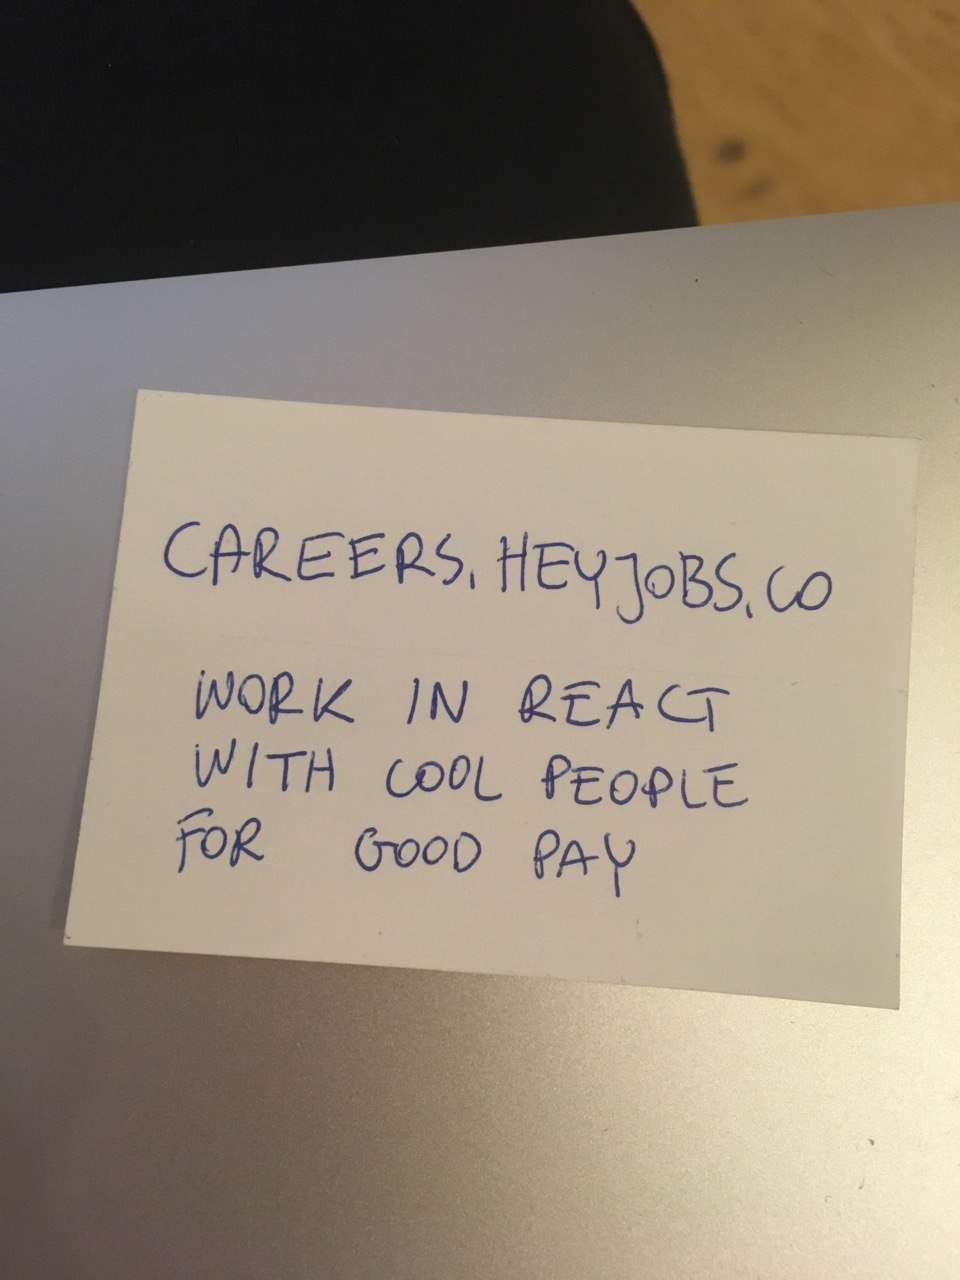 CAREERS.HEYJOBS.CO
WORK IN REACT
WITH COOL PEOPLE
FOR GOOD PAY